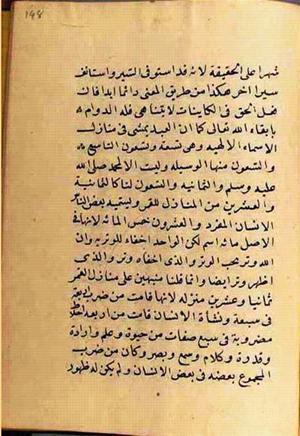 ١٤٨
شهرا على الحقيقة لانه قد استوفى السير واستانف
سيرا اخر هكذا من طريق المعنى دائما ابدا فان
فضل الحق فى الكاينات لا يتناهى فله الدوام
بابقاء الله تعالى كما ان العبد يمشى فى منازل
الاسماء الالهيه وهى تسعة وتسعون التاسع
والتسعون منها الوسيله وليست الا لمحمد صلى الله
عليه وسلم والثمانيه والتسعون لنا كالثمانية
والعشرين من المنازل للقمر ويسميه بعض الناس
الانسان المفرد والعشرون خمس المائه لانها فى
الاصل مائة اسم لكن الواحد اخفاه للوتريه فان
الله وتر يحب الوتر والذى اخفاه وتر والذى
اظهر وتر ايضا وانما قلنا منبهين على منازل القمر
ثمانيا وعشرين منزله لانها قامت من ضرب اربعة
فى سبعة ونشأة الانسان قامت من اربعة اخلاط
مضروبة فى سبع صفات من حيوة وعلم وارادة
وقدرة وكلام وسمع وبصر وكان من ضرب
المجموع بعضه فى بعض الانسان ولم يكن له ظهور